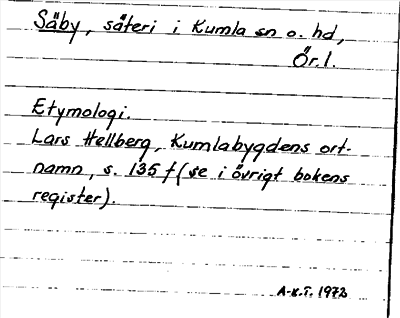 Säby, säteri i Kumla sn o. hd,
Ör.l.
Etymologi.
Lars Hellberg, Kumlabygdens ort-
namn, s. 135 f (se i övrigt bokens
register).
A-K.T. 1973